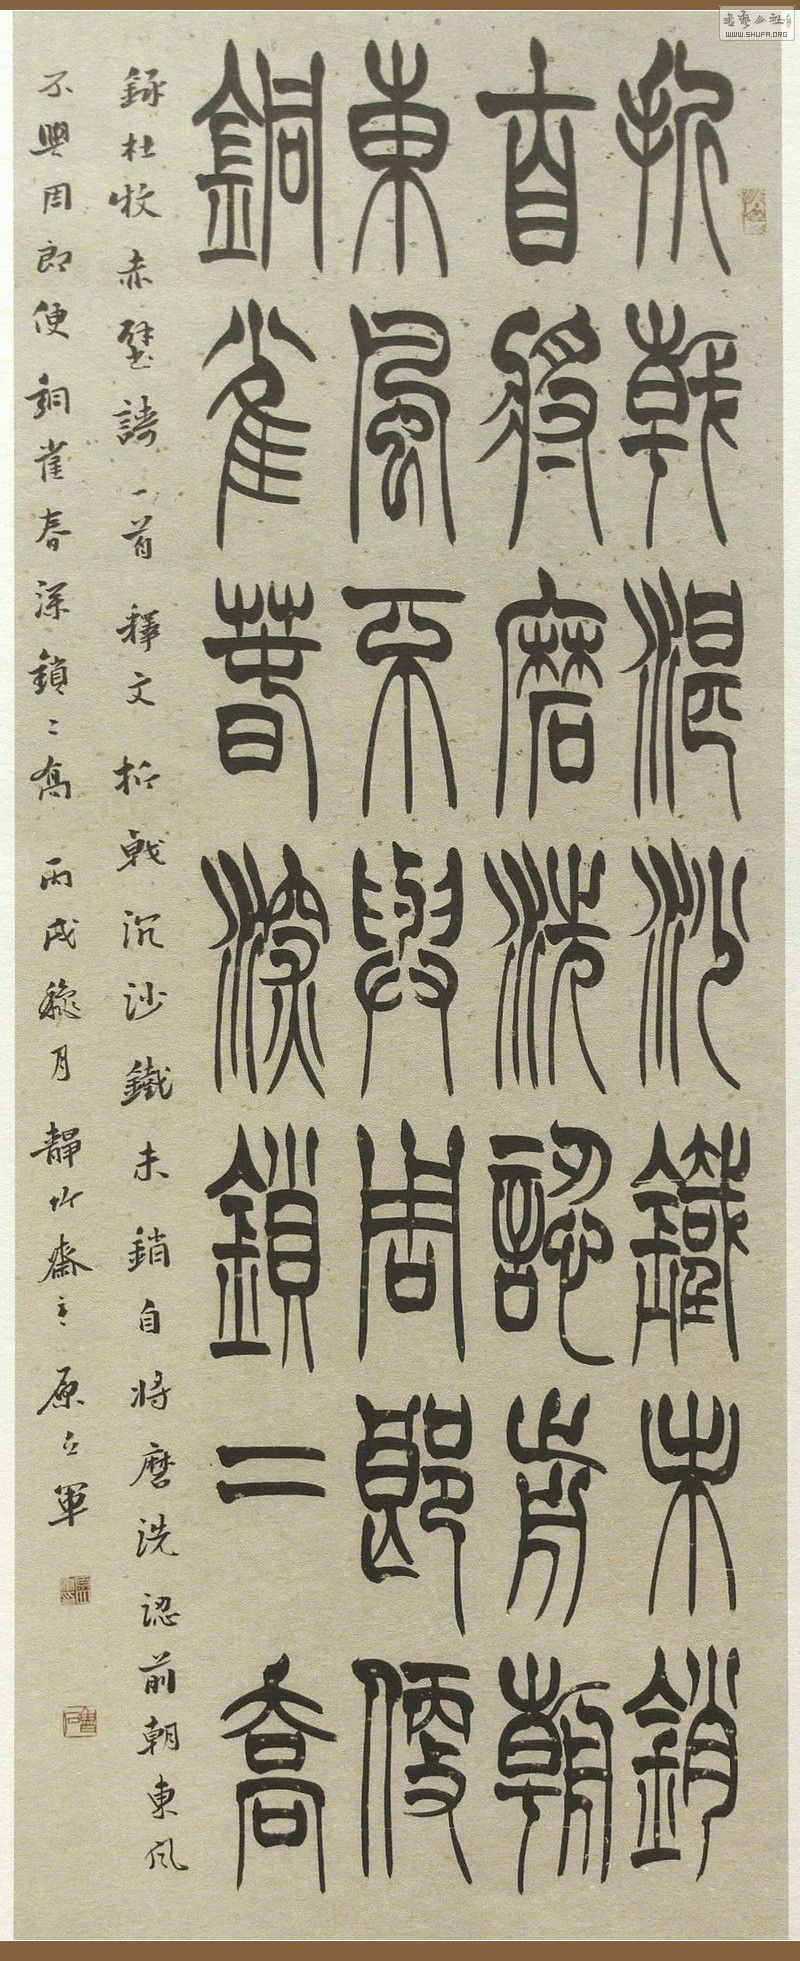 折戟沉沙鐵未銷
自將磨洗認前朝
東風不與周郎便
銅雀春深鎖二喬
錄杜牧赤壁詩一首 釋文 折戟沉沙鐵未銷自將磨洗認前朝東風
不與周郎便銅雀春深鎖二喬 丙戌穐月靜竹齋主原立軍
书艺公社
WWW.SHUFA.ORG